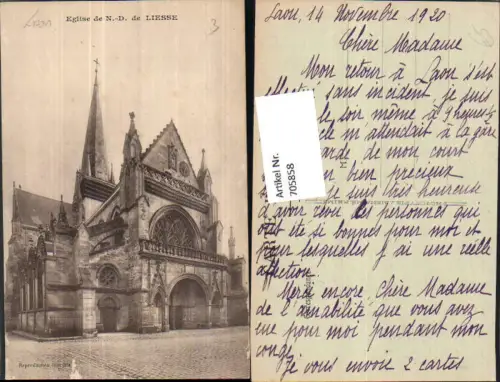 Eglise de N.-D. de LIESSE
3
Reproduction interdite
Laon, 14 Novembre 1920
Chère Madame
Mon retour à Laon s'est
effectué sans incident je suis
le soir même à 9 heures
m'attendait à la gare
garde de mon court
bien précieux
je suis très heureuse
d'avoir revu des personnes qui
ont été si bonnes pour moi et
pour lesquelles j'ai une réelle
affection.
Merci encore, Chère Madame
de l'amabilité que vous avez
eue pour moi pendant mon
congé.
Je vous envoie 2 cartes
Artikel Nr.
705858